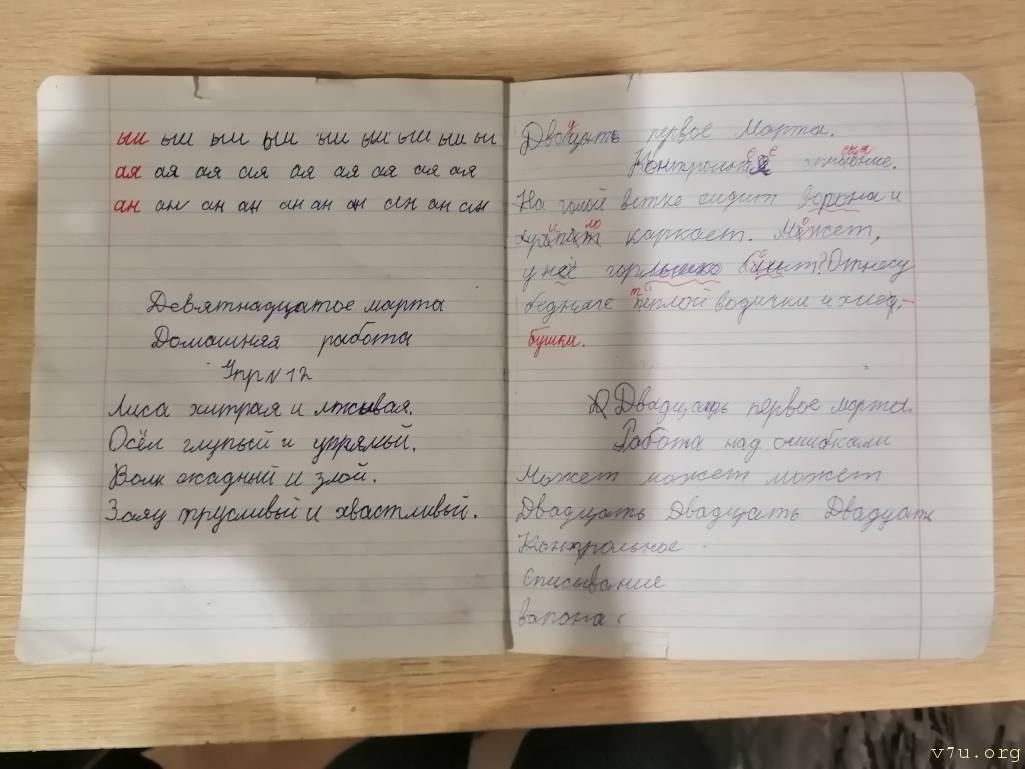 ыи ыи ыи ыи ыи ыи ыи ыи ыи
ая ая ая ая ая ая ая ая ая
ан ан ан ан ан ан ан ан ан ан
Девятнадцатое марта
Домашняя работа
Упр N 12
Лиса хитрая и лживая.
Осёл глупый и упрямый.
Волк жадный и злой.
Заяц трусливый и хвастливый.
первое Марта.
На голой ветке сидит ворона и
каркает. Может,
у неё горлышко Отнесу
бедняге тёплой водички и хлед-
бушки.
Двадцать первое марта.
Работа над ошибками
Может может может
Двадцать Двадцать Двадцать
Контрольное
Списывание
вапона
v7u.org